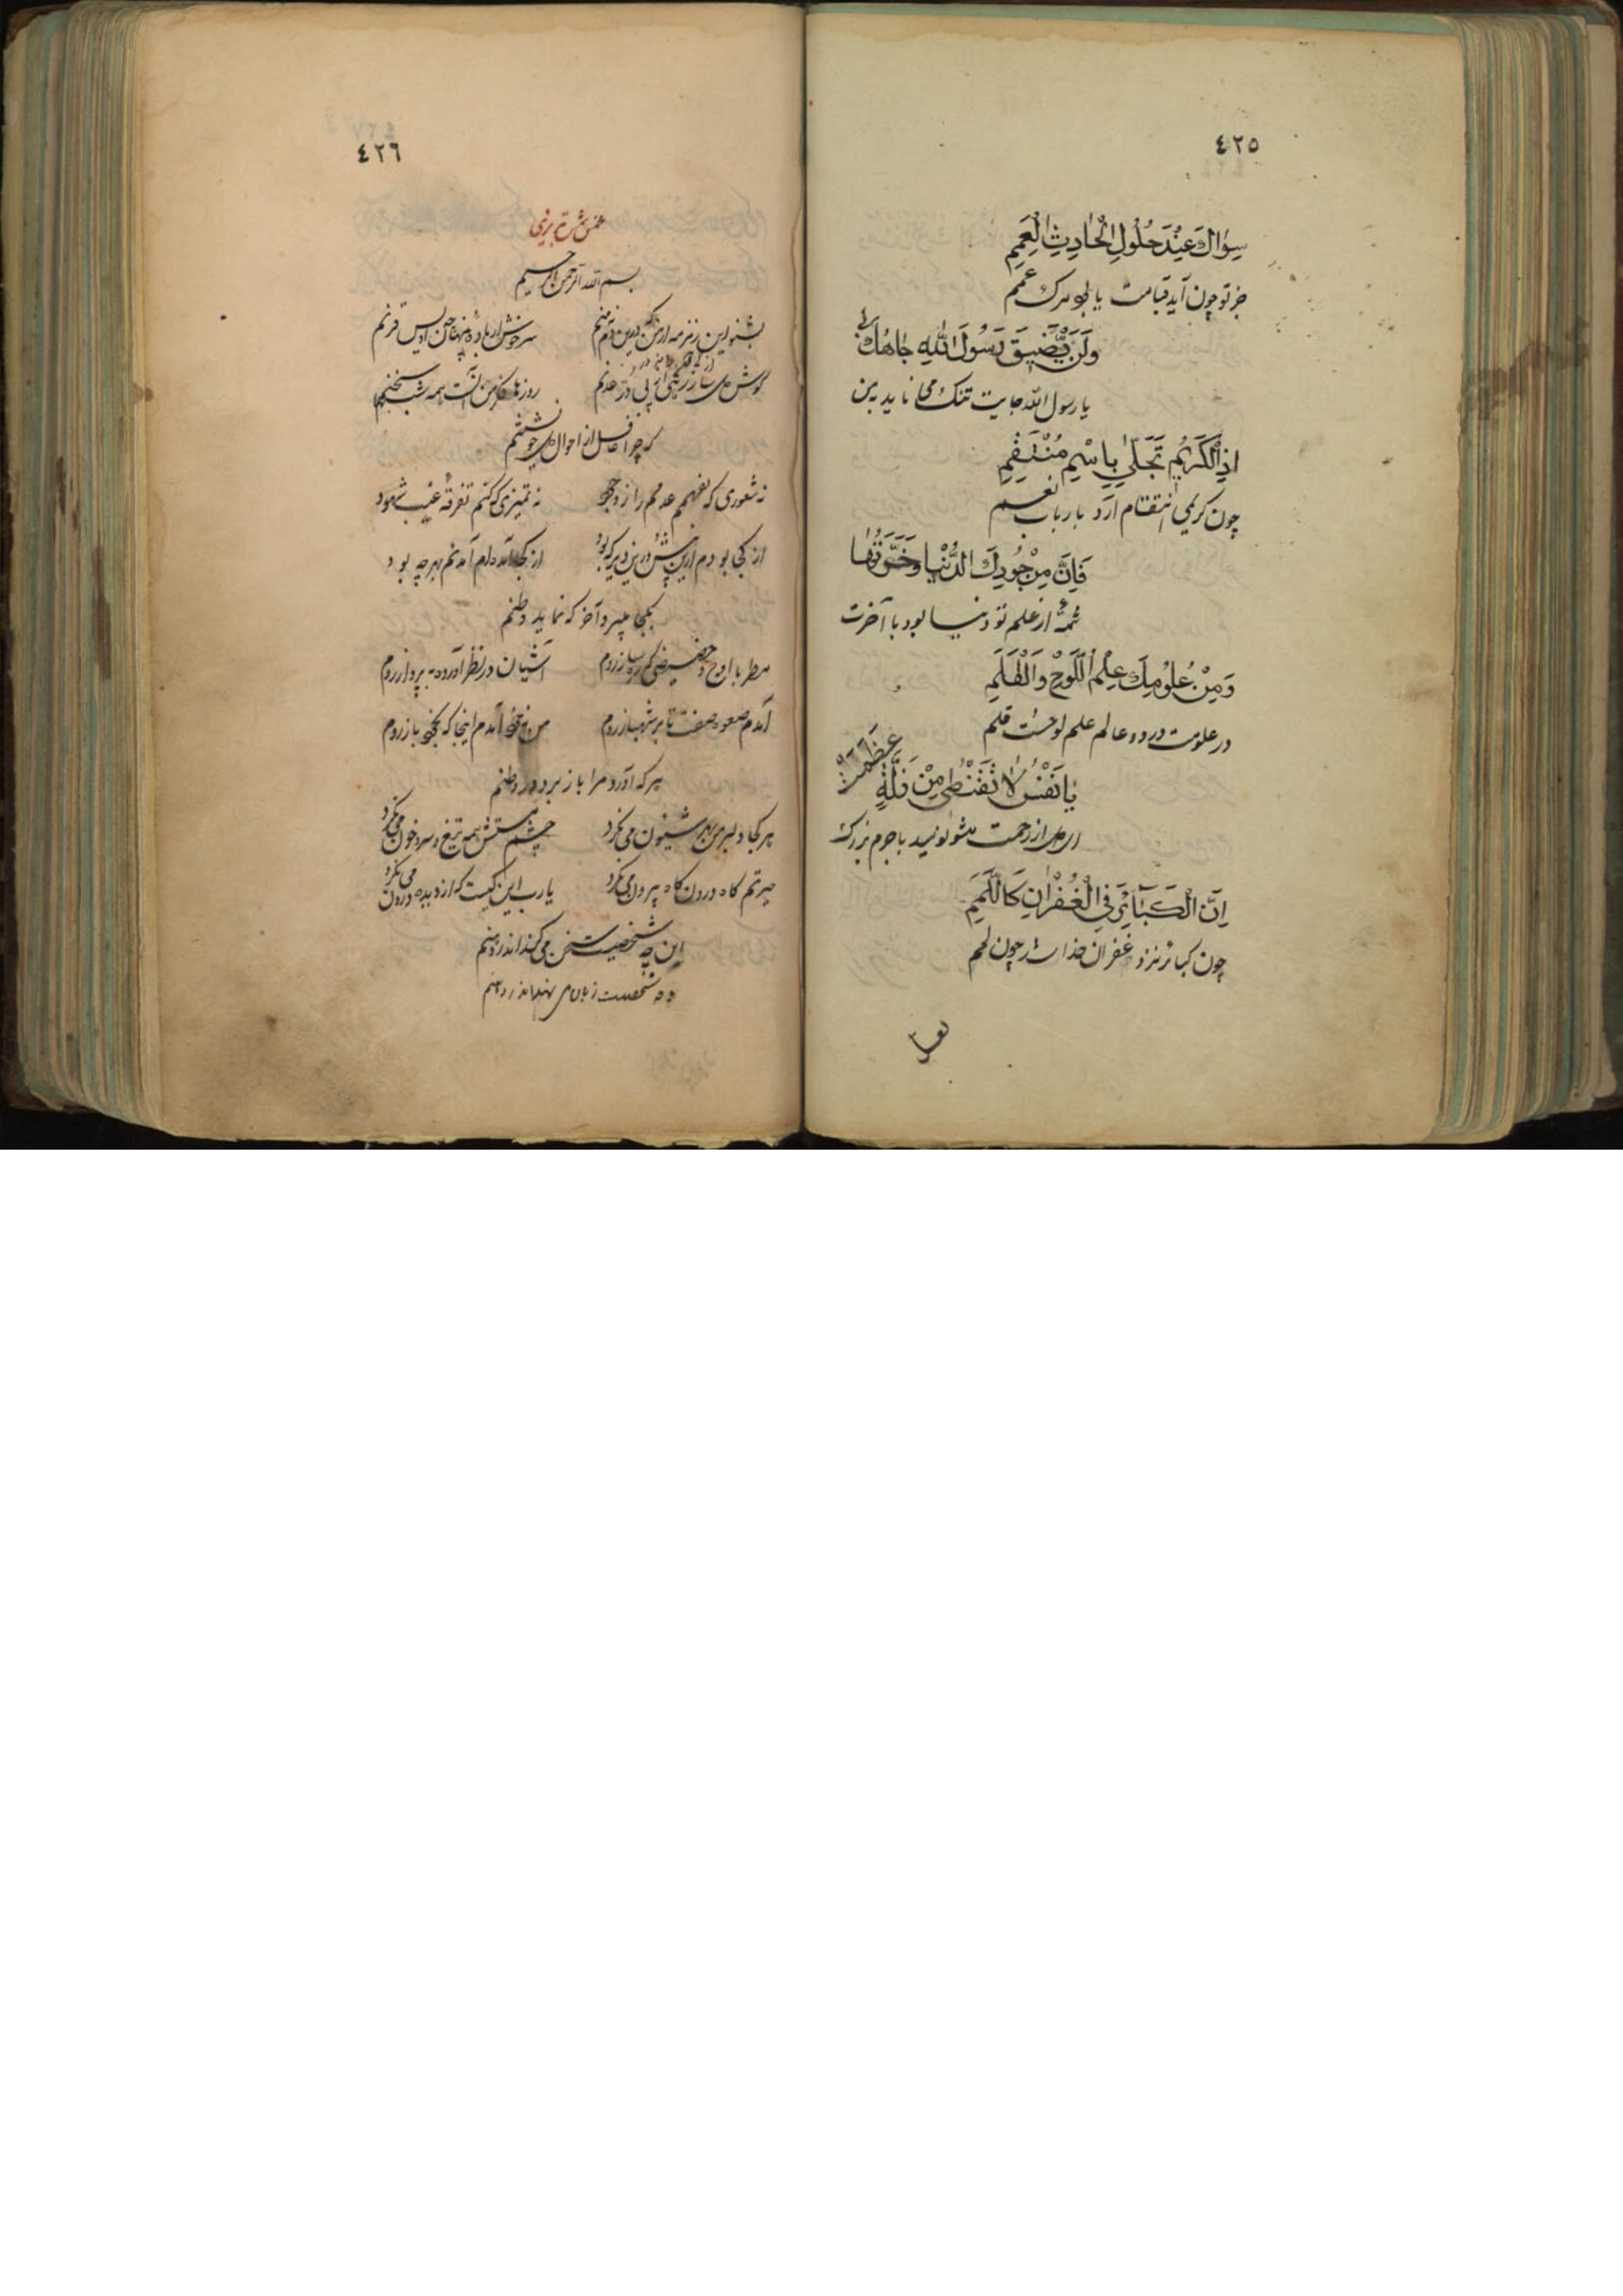 ٤٢٥
سِوَاكَ عِنْدَ حُلُولِ الْحَادِثِ الْعَمِمِ
جز تو چون آید قیامت یا بود مرک عمم
وَلَنْ يَّضِيقَ رَسُولَ اللّٰهِ جَاهُكَ بِي
یا رسول الله جایت تنک می ناید بمن
اِذِ الْكَرِيْمُ تَجَلّٰى بِاسْمِ مُنْتَقِمِ
چون کریمی انتقام آرد بارباب نعم
فَاِنَّ مِنْ جُودِكَ الدُّنْيَا وَضَرَّتَهَا
شمهٔ از علم تو دنیا بود با آخرت
وَمِنْ عُلُومِكَ عِلْمُ اللَّوْحِ وَالْقَلَمِ
در علومت در دو عالم علم لوحست قلم
يَا نَفْسُ لَا تَقْنَطِي مِنْ زَلَّةٍ عَظُمَتْ
ای دل از رحمت مشو نومید با جرم بزرک
اِنَّ الْكَبَآئِرَ فِي الْغُفْرَانِ كَاللَّمَمِ
چون کبائر نزد غفران خدا شد چون لمم
٤٢٦
مخمس شمس تبریزی
بسم الله الرحمن الرحیم
بشنو این زمزمه از من که درین دم منم سرخوش از بادهٔ پنهانی اویس قرنم
کوش روزها فکر من آنست همه شب سخنم
که چرا غافل از احوال دل خویشتنم
نه شعوری که بفهمم عدمم را ز وجود نه تمیزی که کنم تفرقهٔ غیب شهود
از کجا بودم ازین پیش درین دیر که بود از کجا آمده‌ام آمدنم بهر چه بود
بکجا میروم آخر که نماید وطنم
با اوج و حضیضی که ره ساز روم آشیان در نظر آورده به پرواز روم
آمدم صعوه صفت تا بر شهباز روم من بخود نامدم اینجا که بخود باز روم
هر که آورد مرا باز برد در وطنم
هر کجا دلبر من شبخون می نکرد چشم مستش همه تیغ و سر و خون می نکرد
حیرتم کاه درون کاه برون می نکرد یارب این کیست که از دیده درون می نکرد
این چه شخصیست سخن می کند اندر دهنم